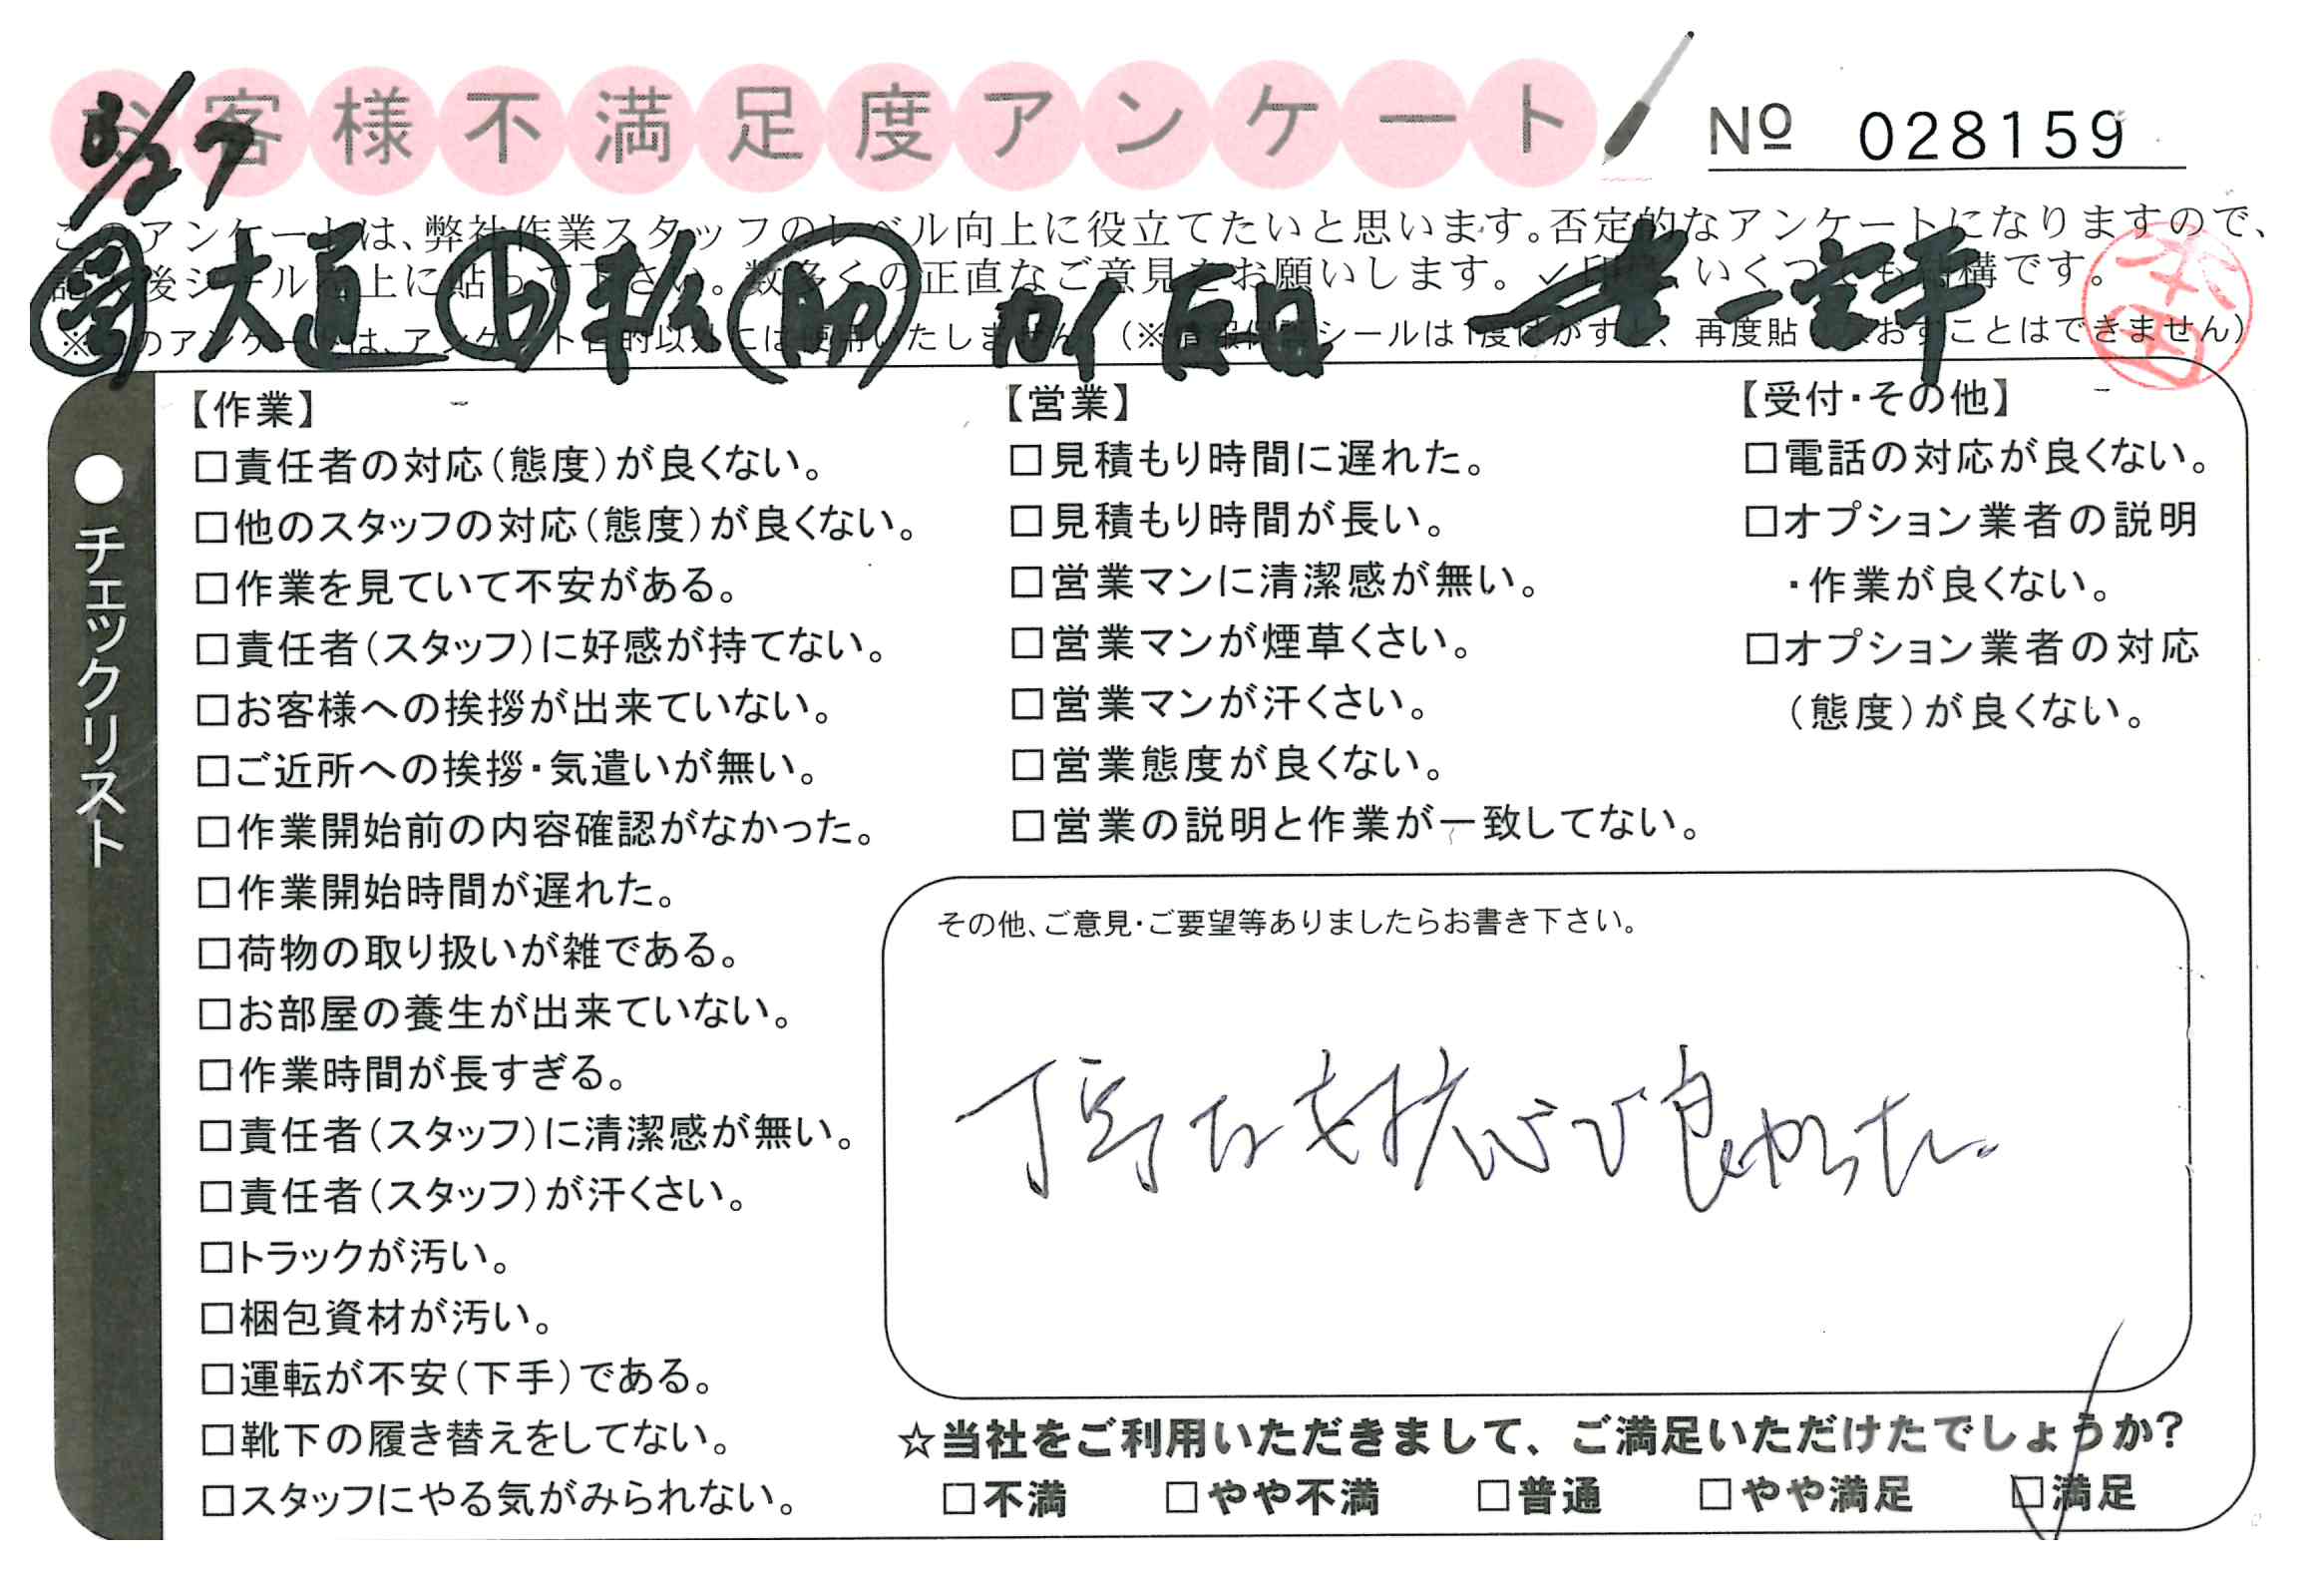 お客様不満足度アンケート
№ 028159
このアンケートは、弊社作業スタッフのレベル向上に役立てたいと思います。否定的なアンケートになりますので、
記入後シールを上に貼って下さい。数多くの正直なご意見をお願いします。✓印は、いくつでも結構です。
※このアンケートは、アンケート目的以外には使用いたしません (※情報保護シールは1度はがすと、再度貼りなおすことはできません)
大道 助
本田
●チェックリスト
【作業】
□責任者の対応(態度)が良くない。
□他のスタッフの対応(態度)が良くない。
□作業を見ていて不安がある。
□責任者(スタッフ)に好感が持てない。
□お客様への挨拶が出来ていない。
□ご近所への挨拶・気遣いが無い。
□作業開始前の内容確認がなかった。
□作業開始時間が遅れた。
□荷物の取り扱いが雑である。
□お部屋の養生が出来ていない。
□作業時間が長すぎる。
□責任者(スタッフ)に清潔感が無い。
□責任者(スタッフ)が汗くさい。
□トラックが汚い。
□梱包資材が汚い。
□運転が不安(下手)である。
□靴下の履き替えをしてない。
□スタッフにやる気がみられない。
【営業】
□見積もり時間に遅れた。
□見積もり時間が長い。
□営業マンに清潔感が無い。
□営業マンが煙草くさい。
□営業マンが汗くさい。
□営業態度が良くない。
□営業の説明と作業が一致してない。
【受付・その他】
□電話の対応が良くない。
□オプション業者の説明
・作業が良くない。
□オプション業者の対応
(態度)が良くない。
その他、ご意見・ご要望等ありましたらお書き下さい。
丁寧な対応が良かった。
☆当社をご利用いただきまして、ご満足いただけたでしょうか?
□不満 □やや不満 □普通 □やや満足 ☑満足